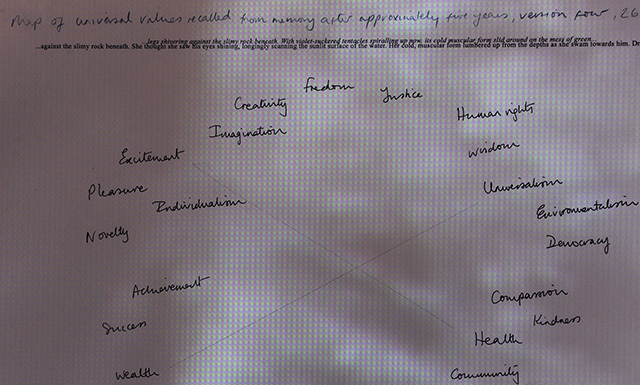 Map of universal values recalled from memory after approximately five years, version four, 26
...legs shivering against the slimy rock beneath. With violet-suckered tentacles spiralling up now, its cold muscular form slid around on the mess of green...
...against the slimy rock beneath. She thought she saw his eyes shining, longingly scanning the sunlit surface of the water. Her cold, muscular form lumbered up from the depths as she swam towards him. Dr
Freedom
Justice
Creativity
Human rights
Imagination
Wisdom
Excitement
Universalism
Pleasure
Individualism
Environmentalism
Novelty
Democracy
Achievement
Compassion
Success
Kindness
Health
Wealth
Community